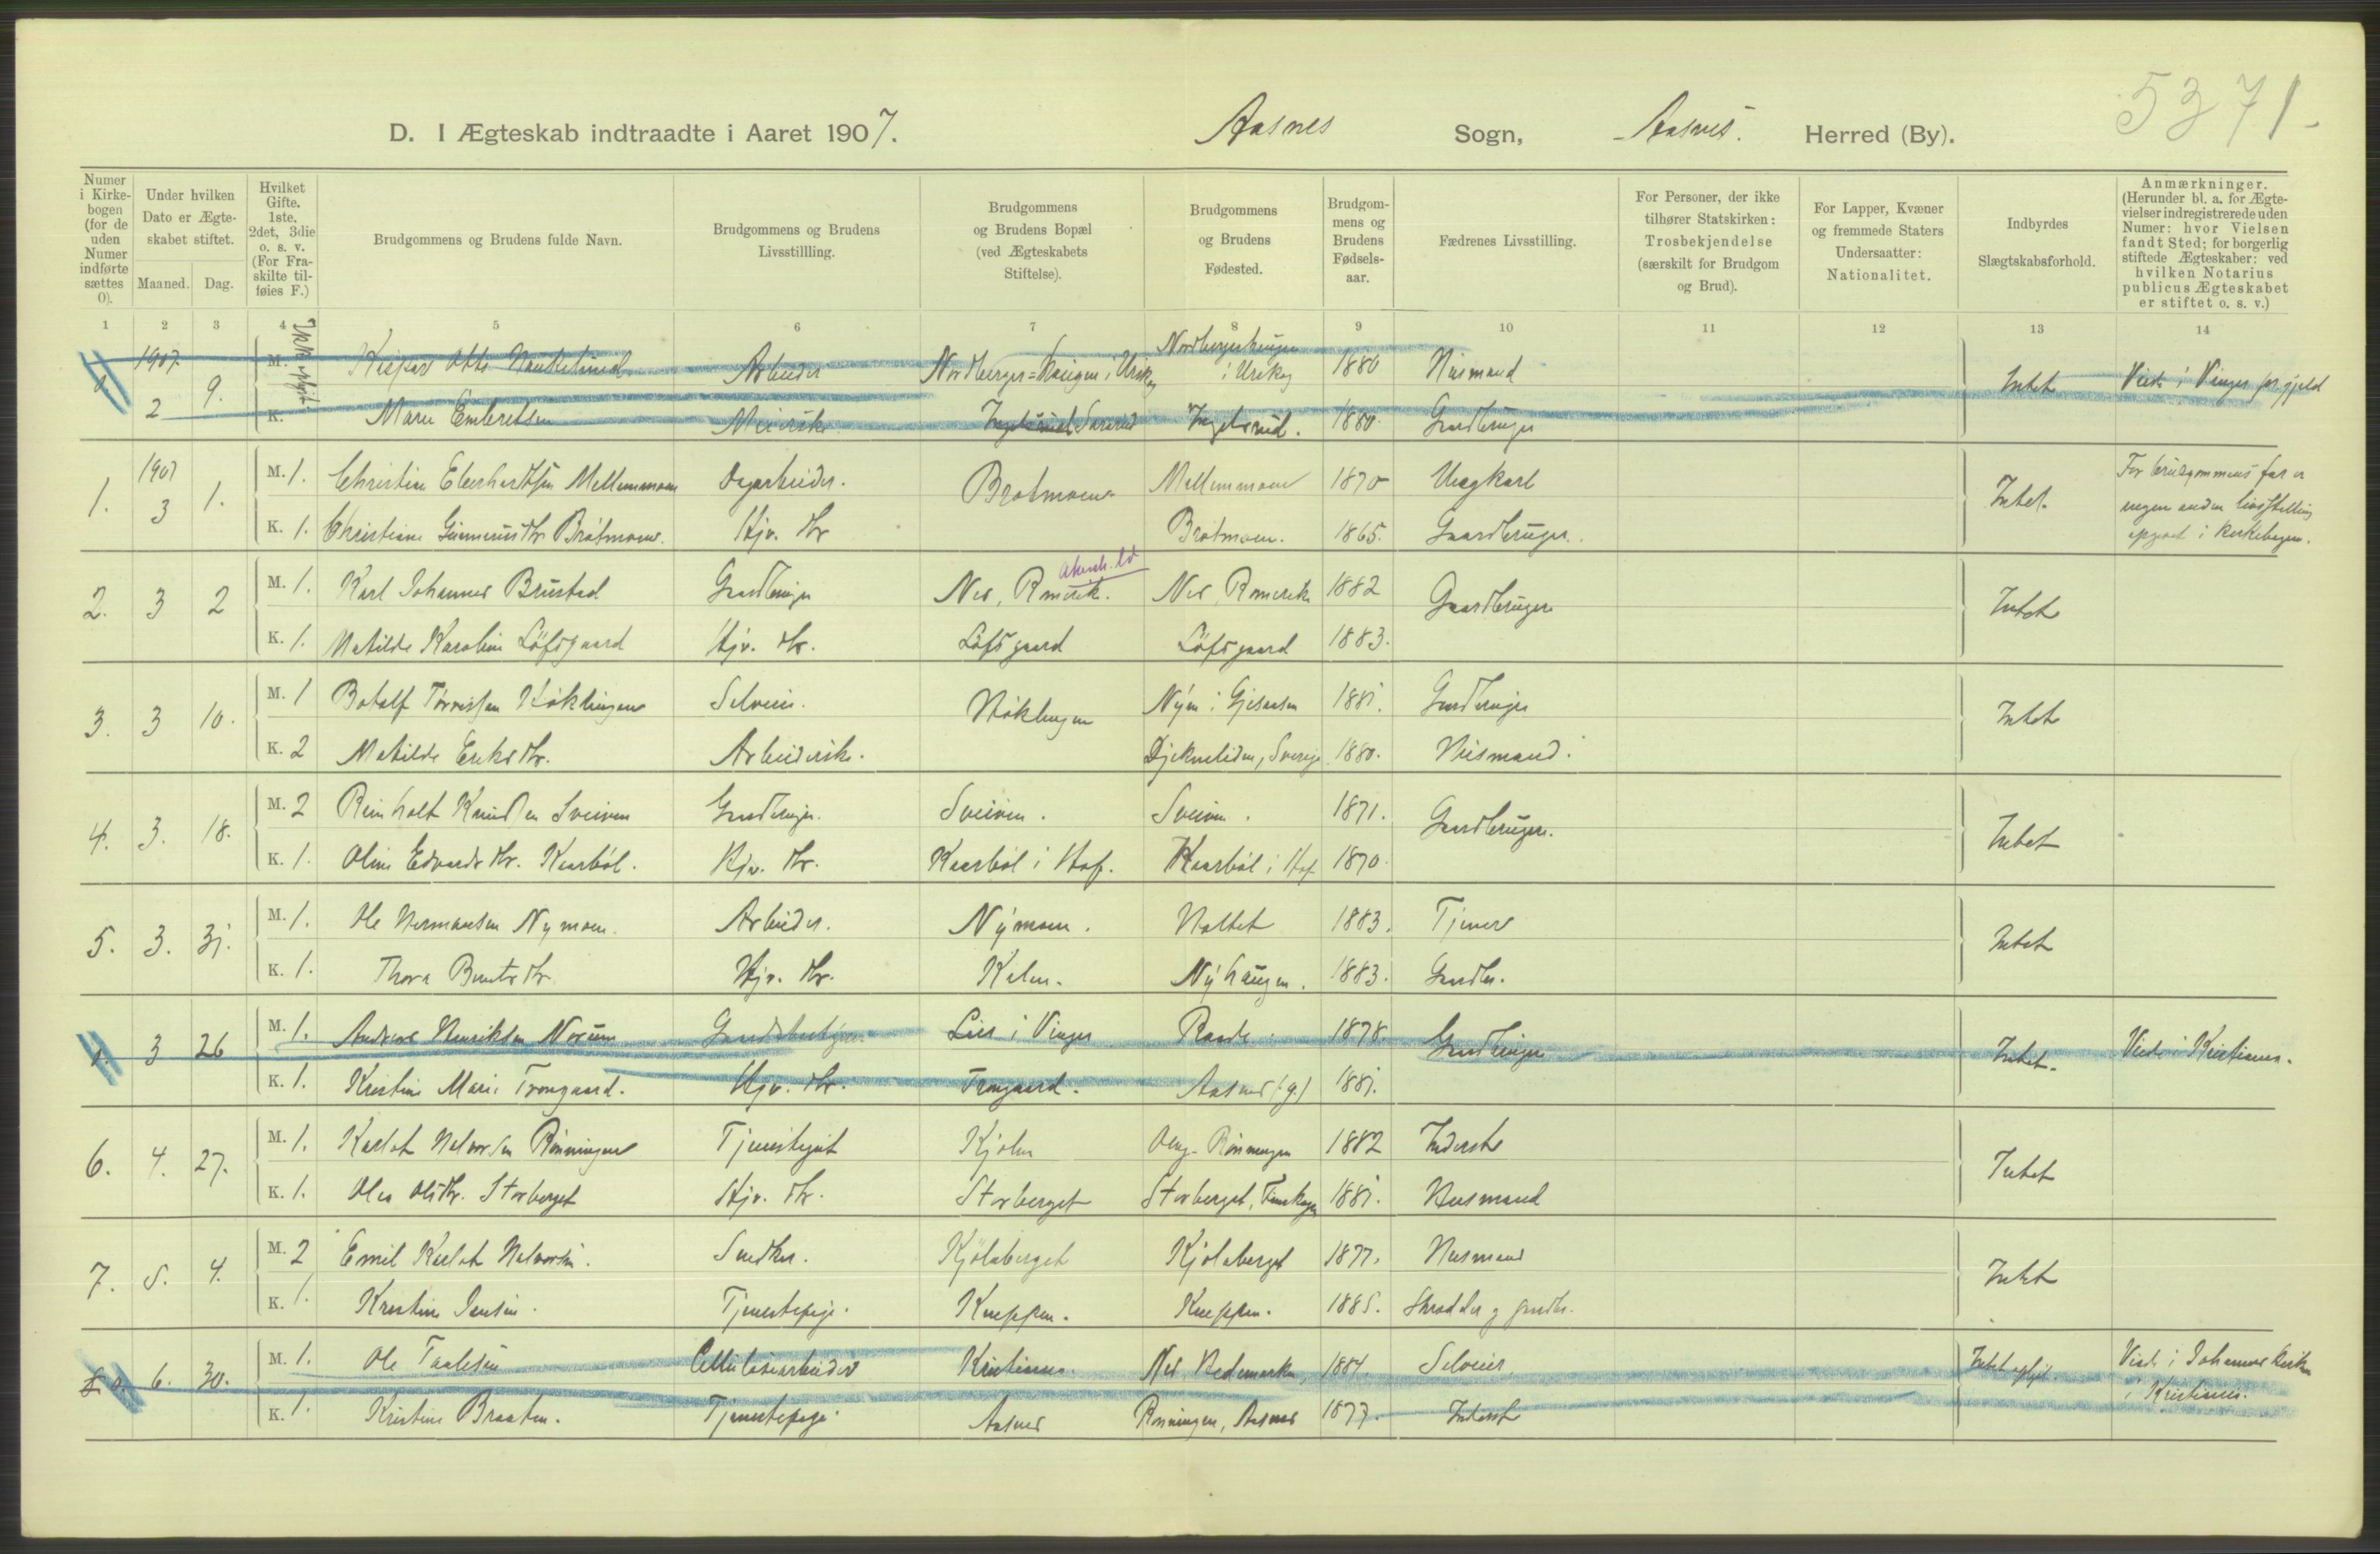 5371.
D. I Ægteskab indtraadte i Aaret 1907. Aasnes Sogn, Aasnes. Herred (By).
Numer i Kirkebogen (for de uden Numer indførte sættes 0).
Under hvilken Dato er Ægteskabet stiftet.
Maaned. Dag.
Hvilket Gifte. 1ste, 2det, 3die o. s. v. (For Fraskilte tilføies F.)
Brudgommens og Brudens fulde Navn.
Brudgommens og Brudens Livsstillling.
Brudgommens og Brudens Bopæl (ved Ægteskabets Stiftelse).
Brudgommens og Brudens Fødested.
Brudgommens og Brudens Fødselsaar.
Fædrenes Livsstilling.
For Personer, der ikke tilhører Statskirken: Trosbekjendelse (særskilt for Brudgom og Brud).
For Lapper, Kvæner og fremmede Staters Undersaatter: Nationalitet.
Indbyrdes Slægtskabsforhold.
Anmærkninger. (Herunder bl. a. for Ægtevielser indregistrerede uden Numer: hvor Vielsen fandt Sted; for borgerlig stiftede Ægteskaber: ved hvilken Notarius publicus Ægteskabet er stiftet o. s. v.)
1 2 3 4 5 6 7 8 9 10 11 12 13 14
0. 1907. 2 9. Ikke opgit.
M. Kaspar Otto Arbeider Nordberger=Haugen i Urskog Nordbergerhaugen i Urskog 1880 Husmand Intet Viede i Vinger prgjeld
K. Marie Embretsen Meierske Ingelsrud. 1880. Gaardbruger
1. 1907 3 1.
M. 1. Christian Eberhardtsen Mellemmoen Dagarbeider. Bråtmoen Mellemmoen 1870 Intet. For brudgommens far er ingen anden livsstilling opgivet i kirkebogen.
K. 1. Christiane Gunnerusdtr. Bråtmoen. Hjv. dtr Bråtmoen. 1865. Gaardbruger.
2. 3 2
M. 1. Karl Johannes Brustad Gaardbruger Nes, Romerik. Akersh. Nes, Romerike 1882 Gaardbrugere Intet
K. 1. Matilde Karoline Löfsgaard Hjv. dtr. Löfsgaard Löfsgaard 1883.
3. 3 10.
M. 1 Botolf Tørrissen Høklingen Selveier. Høklingen Nyen i Gjesaasen 1881. Gaardbruger Intet
K. 2 Matilde Eriksdtr. Arbeiderske. Djekneliden, Sverige 1880. Husmand.
4. 3. 18.
M. 2 Reinholt Knudsen Sveiven Gaardbruger. Sveiven. Sveiven. 1871. Gaardbrugere. Intet
K. 1. Oline Edvardsdtr. Kaarböl. Hjv. dtr. Kaarböl i Hof. Kaarböl i Hof 1870.
5. 3. 31.
M. 1. Ole Hermansen Nymoen. Arbeider. Nymoen. Holtet 1883. Tjener Intet
K. 1. Thora Berntsdtr. Hjv. dtr. Kalnes. Nyhaugen. 1883. Gaardbr.
0. 3 26
M. 1. Andreas Henriksen Norum Gaardbestyrer Lier i Vinger Raade. 1878. Gaardbruger Intet. Viede i Kristiania.
K. 1. Kristine Marie Tromgaard. Hjv. dtr. Tromgaard. Aasnes (g.) 1881.
6. 4. 27.
M. 1. Karlot Halvorsen Rönningen Tjenestegut Kjölen Rönningen 1882 Inderst Intet
K. 1. Olea Olsdtr. Storberget Hjv. dtr. Storberget Storberget, Finskogen 1881. Husmand
7. 5. 4.
M. 2 Emil Karlot Halvorsen. Snedker. Kjölaberget Kjölaberget 1877. Husmand Intet
K. 1. Kristine Jensen. Tjenestepige. Kneppen. Kneppen. 1885. Skrædder og gaardbr.
0. 6. 30.
M. 1. Ole Taalesen Cellulosearbeider Kristiania. Nes, Hedemarken, 1884. Selveier Intet opgit. Viede i Johannes kirke i Kristiania.
K. 1. Kristine Braaten. Tjenestepige Aasnes Rönningen, Aasnes 1877. Inderst